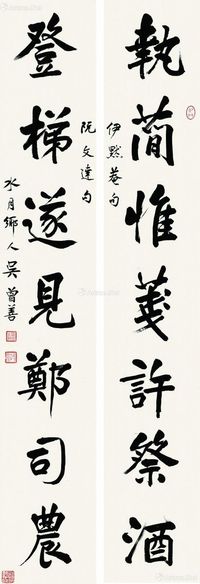 執簡惟箋許祭酒
伊默菴句
登梯遂見鄭司農
阮文達句
水月鄉人吳曾善